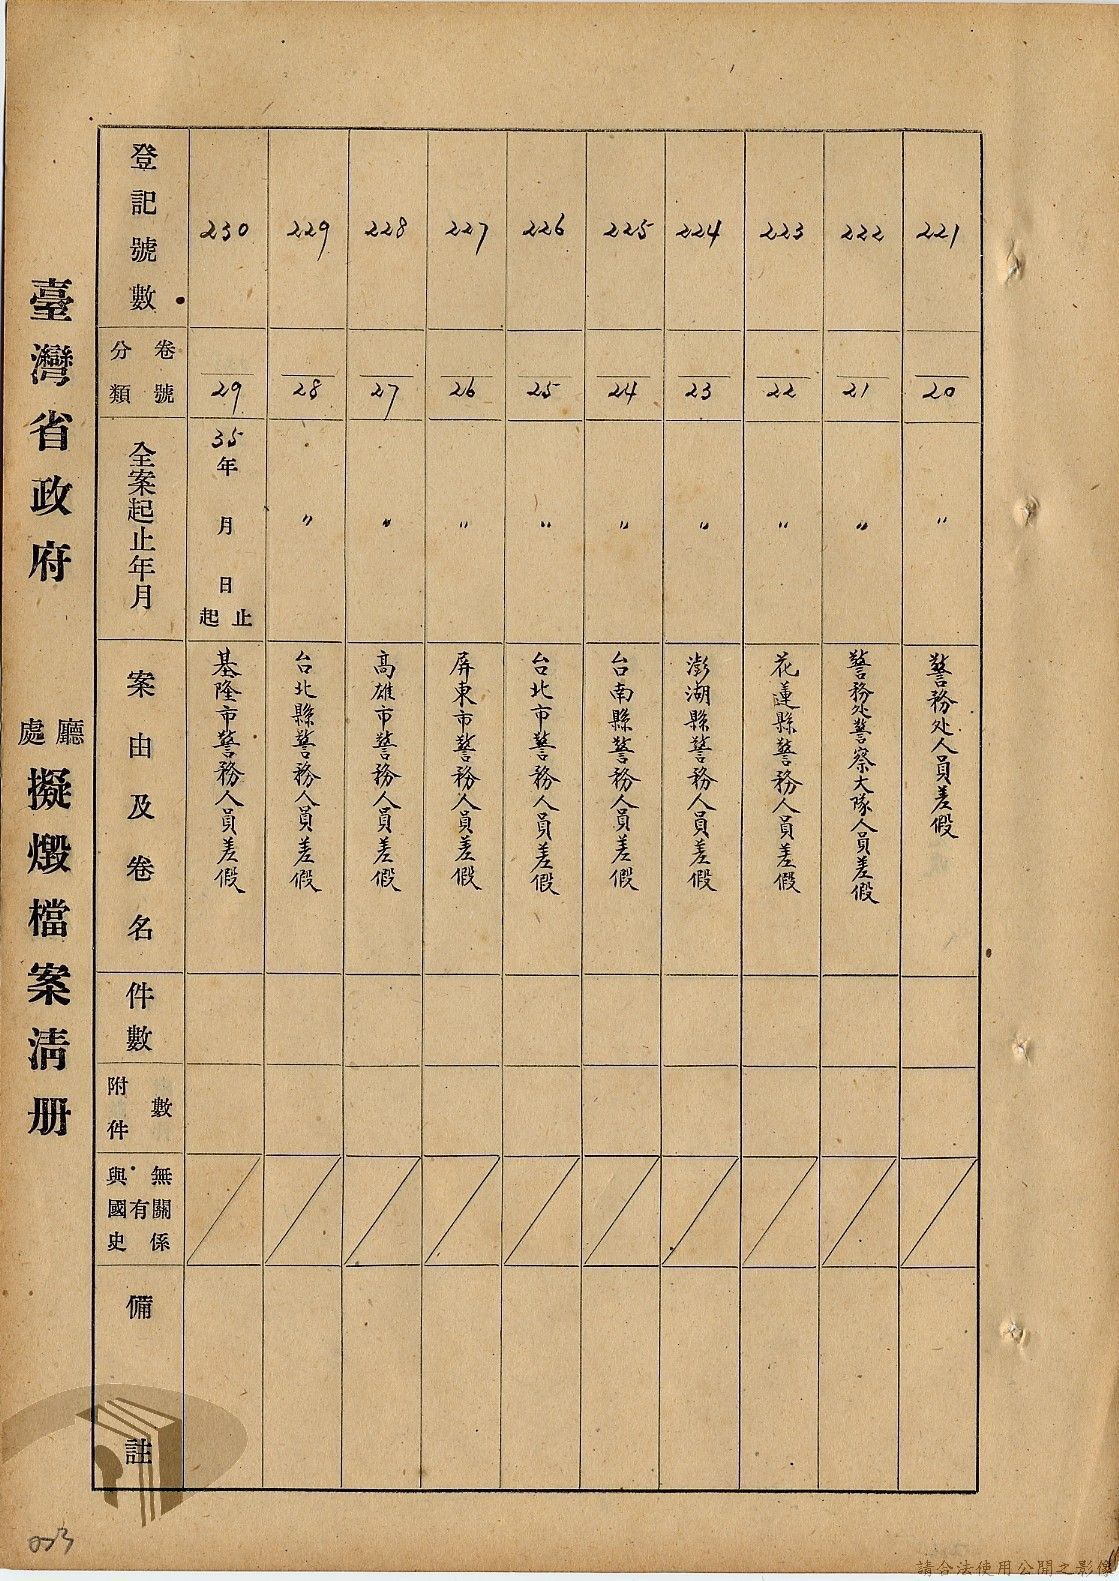 臺灣省政府 廳處 擬燬檔案清册
登記號數
分類 卷號
全案起止年月
案由及卷名
件數
附件數
與國史有無關係
備註
221
20
〃
警務处人員差假
222
21
〃
警務处警察大隊人員差假
223
22
〃
花蓮縣警務人員差假
224
23
〃
澎湖縣警務人員差假
225
24
〃
台南縣警務人員差假
226
25
〃
台北市警務人員差假
227
26
〃
屏東市警務人員差假
228
27
〃
高雄市警務人員差假
229
28
〃
台北縣警務人員差假
230
29
35年 月 日 起止
基隆市警務人員差假
033
請合法使用公開之影像